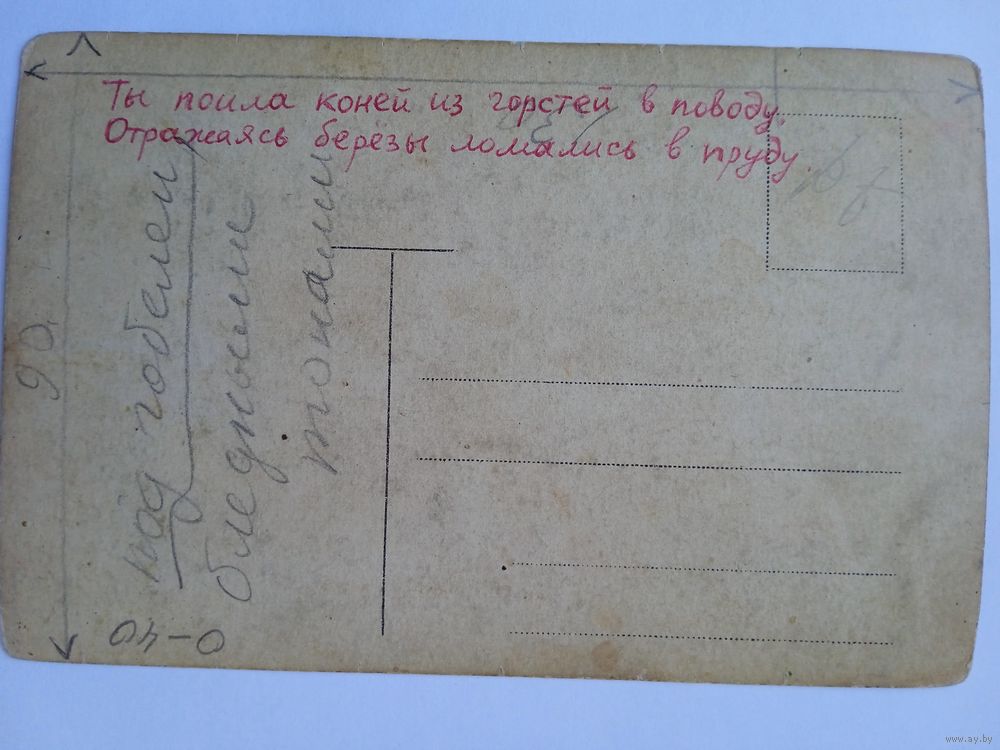 Ты поила коней из горстей в поводу.
Отражаясь берёзы ломались в пруду.
под гобелен
бледными
тонами
90.
0-40
www.ay.by